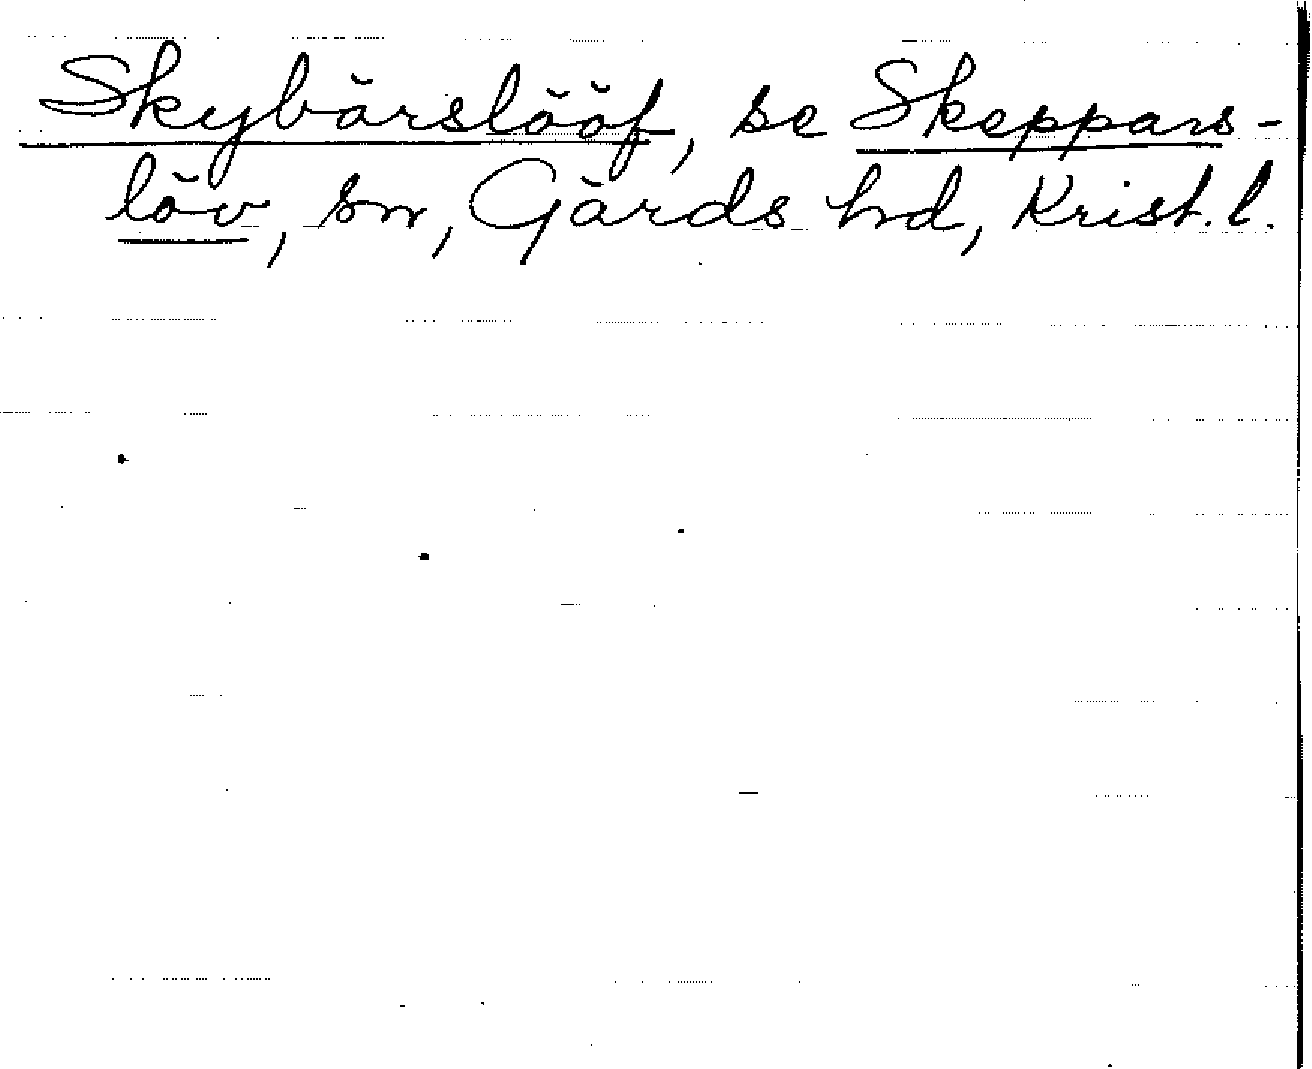 Skybärslööf, se Skeppars-
löv, sn, Gärds hd, Krist. l.